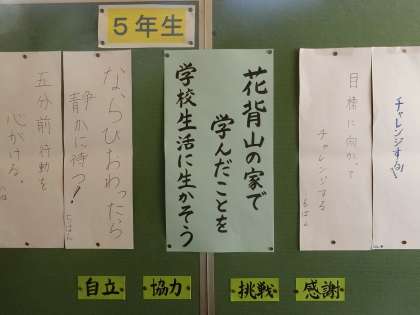 5年生
チャレンジする
目標に向かって
チャレンジする
花背山の家で
学んだことを
学校生活に生かそう
ならびおわったら
静かに待つ!
五分前行動を
心がける。
自立
協力
挑戦
感謝